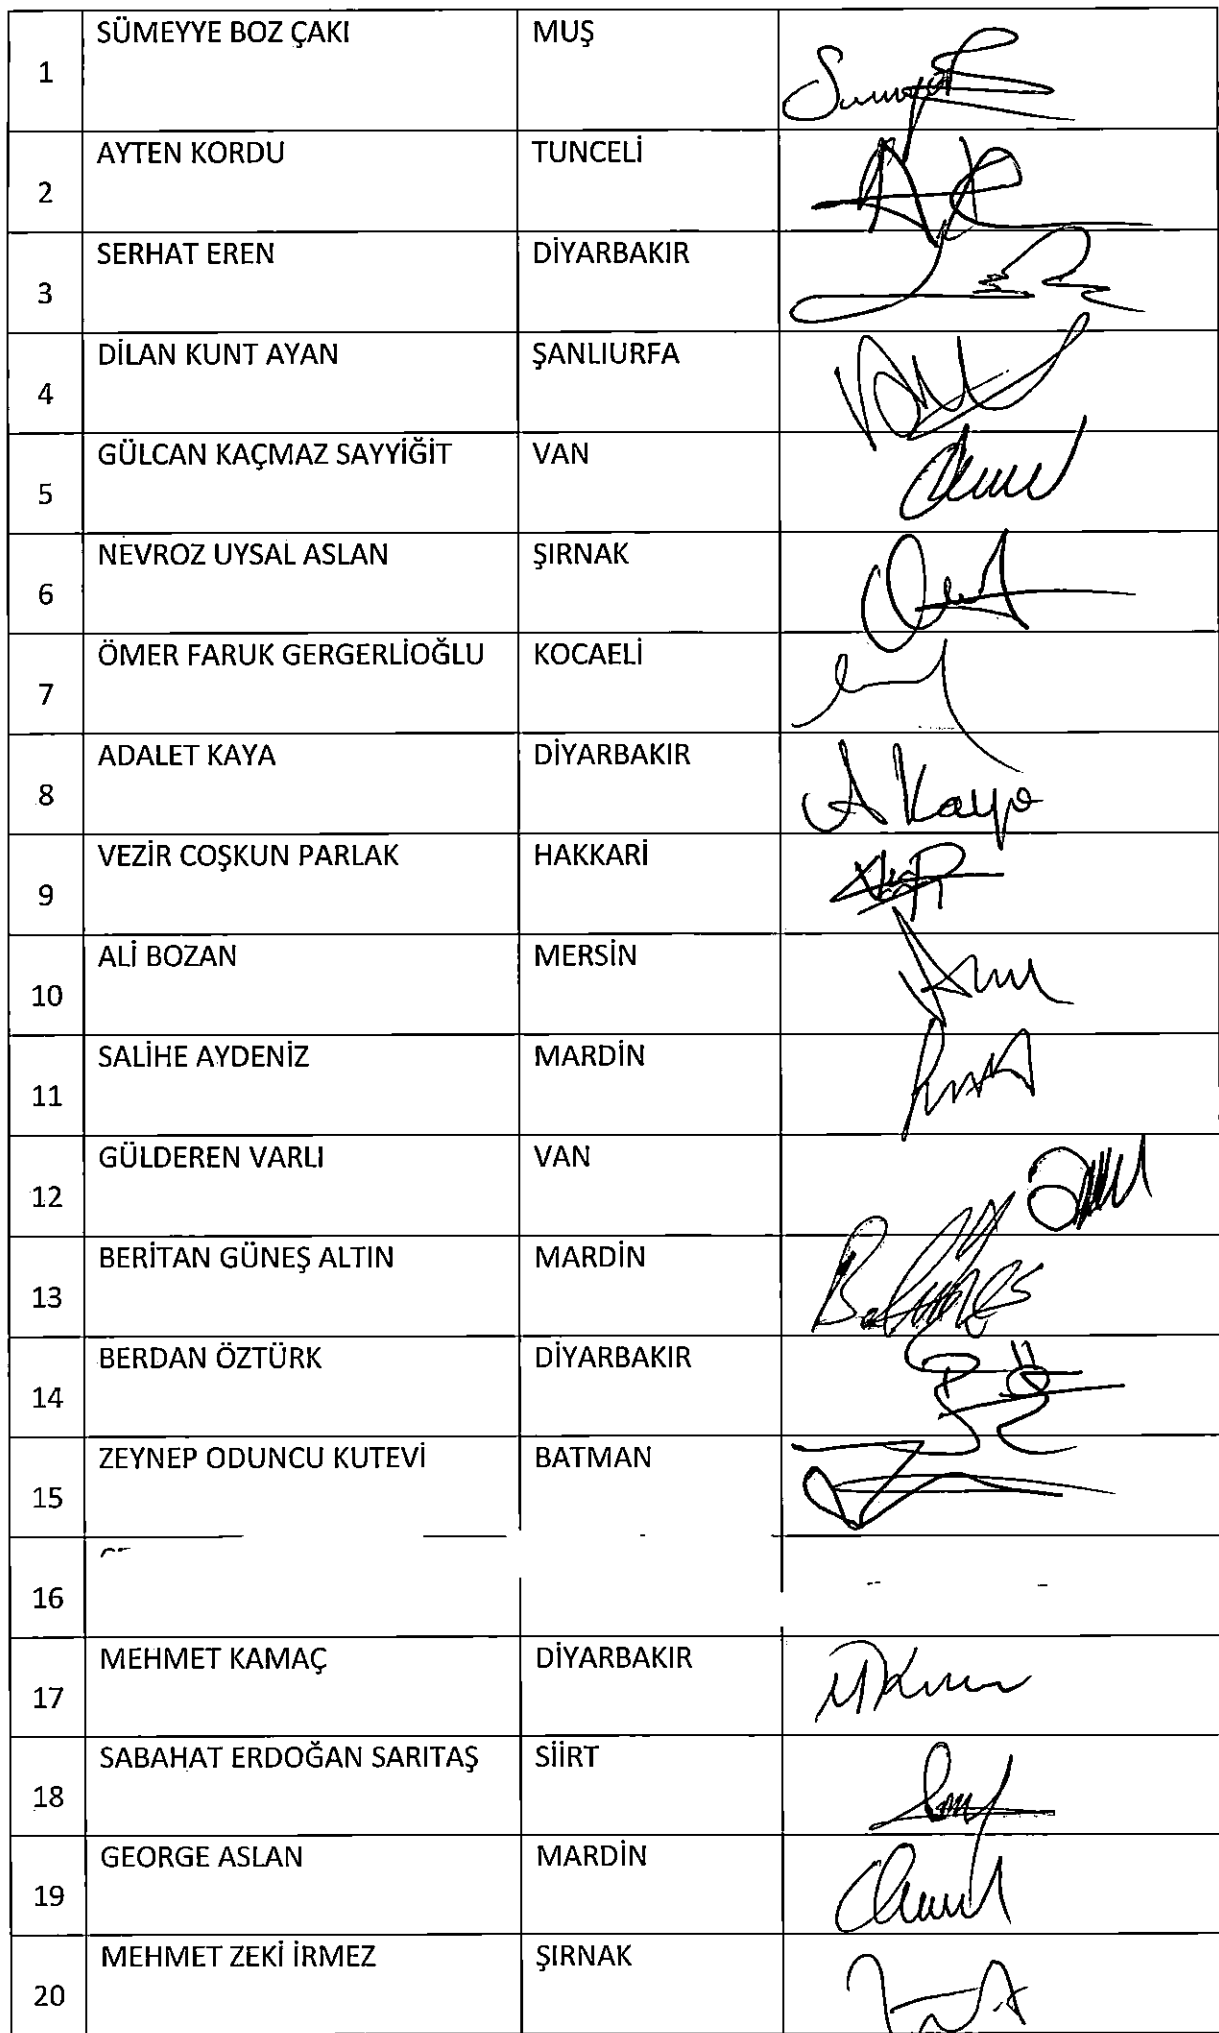 1 SÜMEYYE BOZ ÇAKI MUŞ
2 AYTEN KORDU TUNCELİ
3 SERHAT EREN DİYARBAKIR
4 DİLAN KUNT AYAN ŞANLIURFA
5 GÜLCAN KAÇMAZ SAYYİĞİT VAN
6 NEVROZ UYSAL ASLAN ŞIRNAK
7 ÖMER FARUK GERGERLİOĞLU KOCAELİ
8 ADALET KAYA DİYARBAKIR A Kaya
9 VEZİR COŞKUN PARLAK HAKKARİ
10 ALİ BOZAN MERSİN
11 SALİHE AYDENİZ MARDİN
12 GÜLDEREN VARLI VAN
13 BERİTAN GÜNEŞ ALTIN MARDİN
14 BERDAN ÖZTÜRK DİYARBAKIR
15 ZEYNEP ODUNCU KUTEVİ BATMAN
16
17 MEHMET KAMAÇ DİYARBAKIR
18 SABAHAT ERDOĞAN SARITAŞ SİİRT
19 GEORGE ASLAN MARDİN
20 MEHMET ZEKİ İRMEZ ŞIRNAK